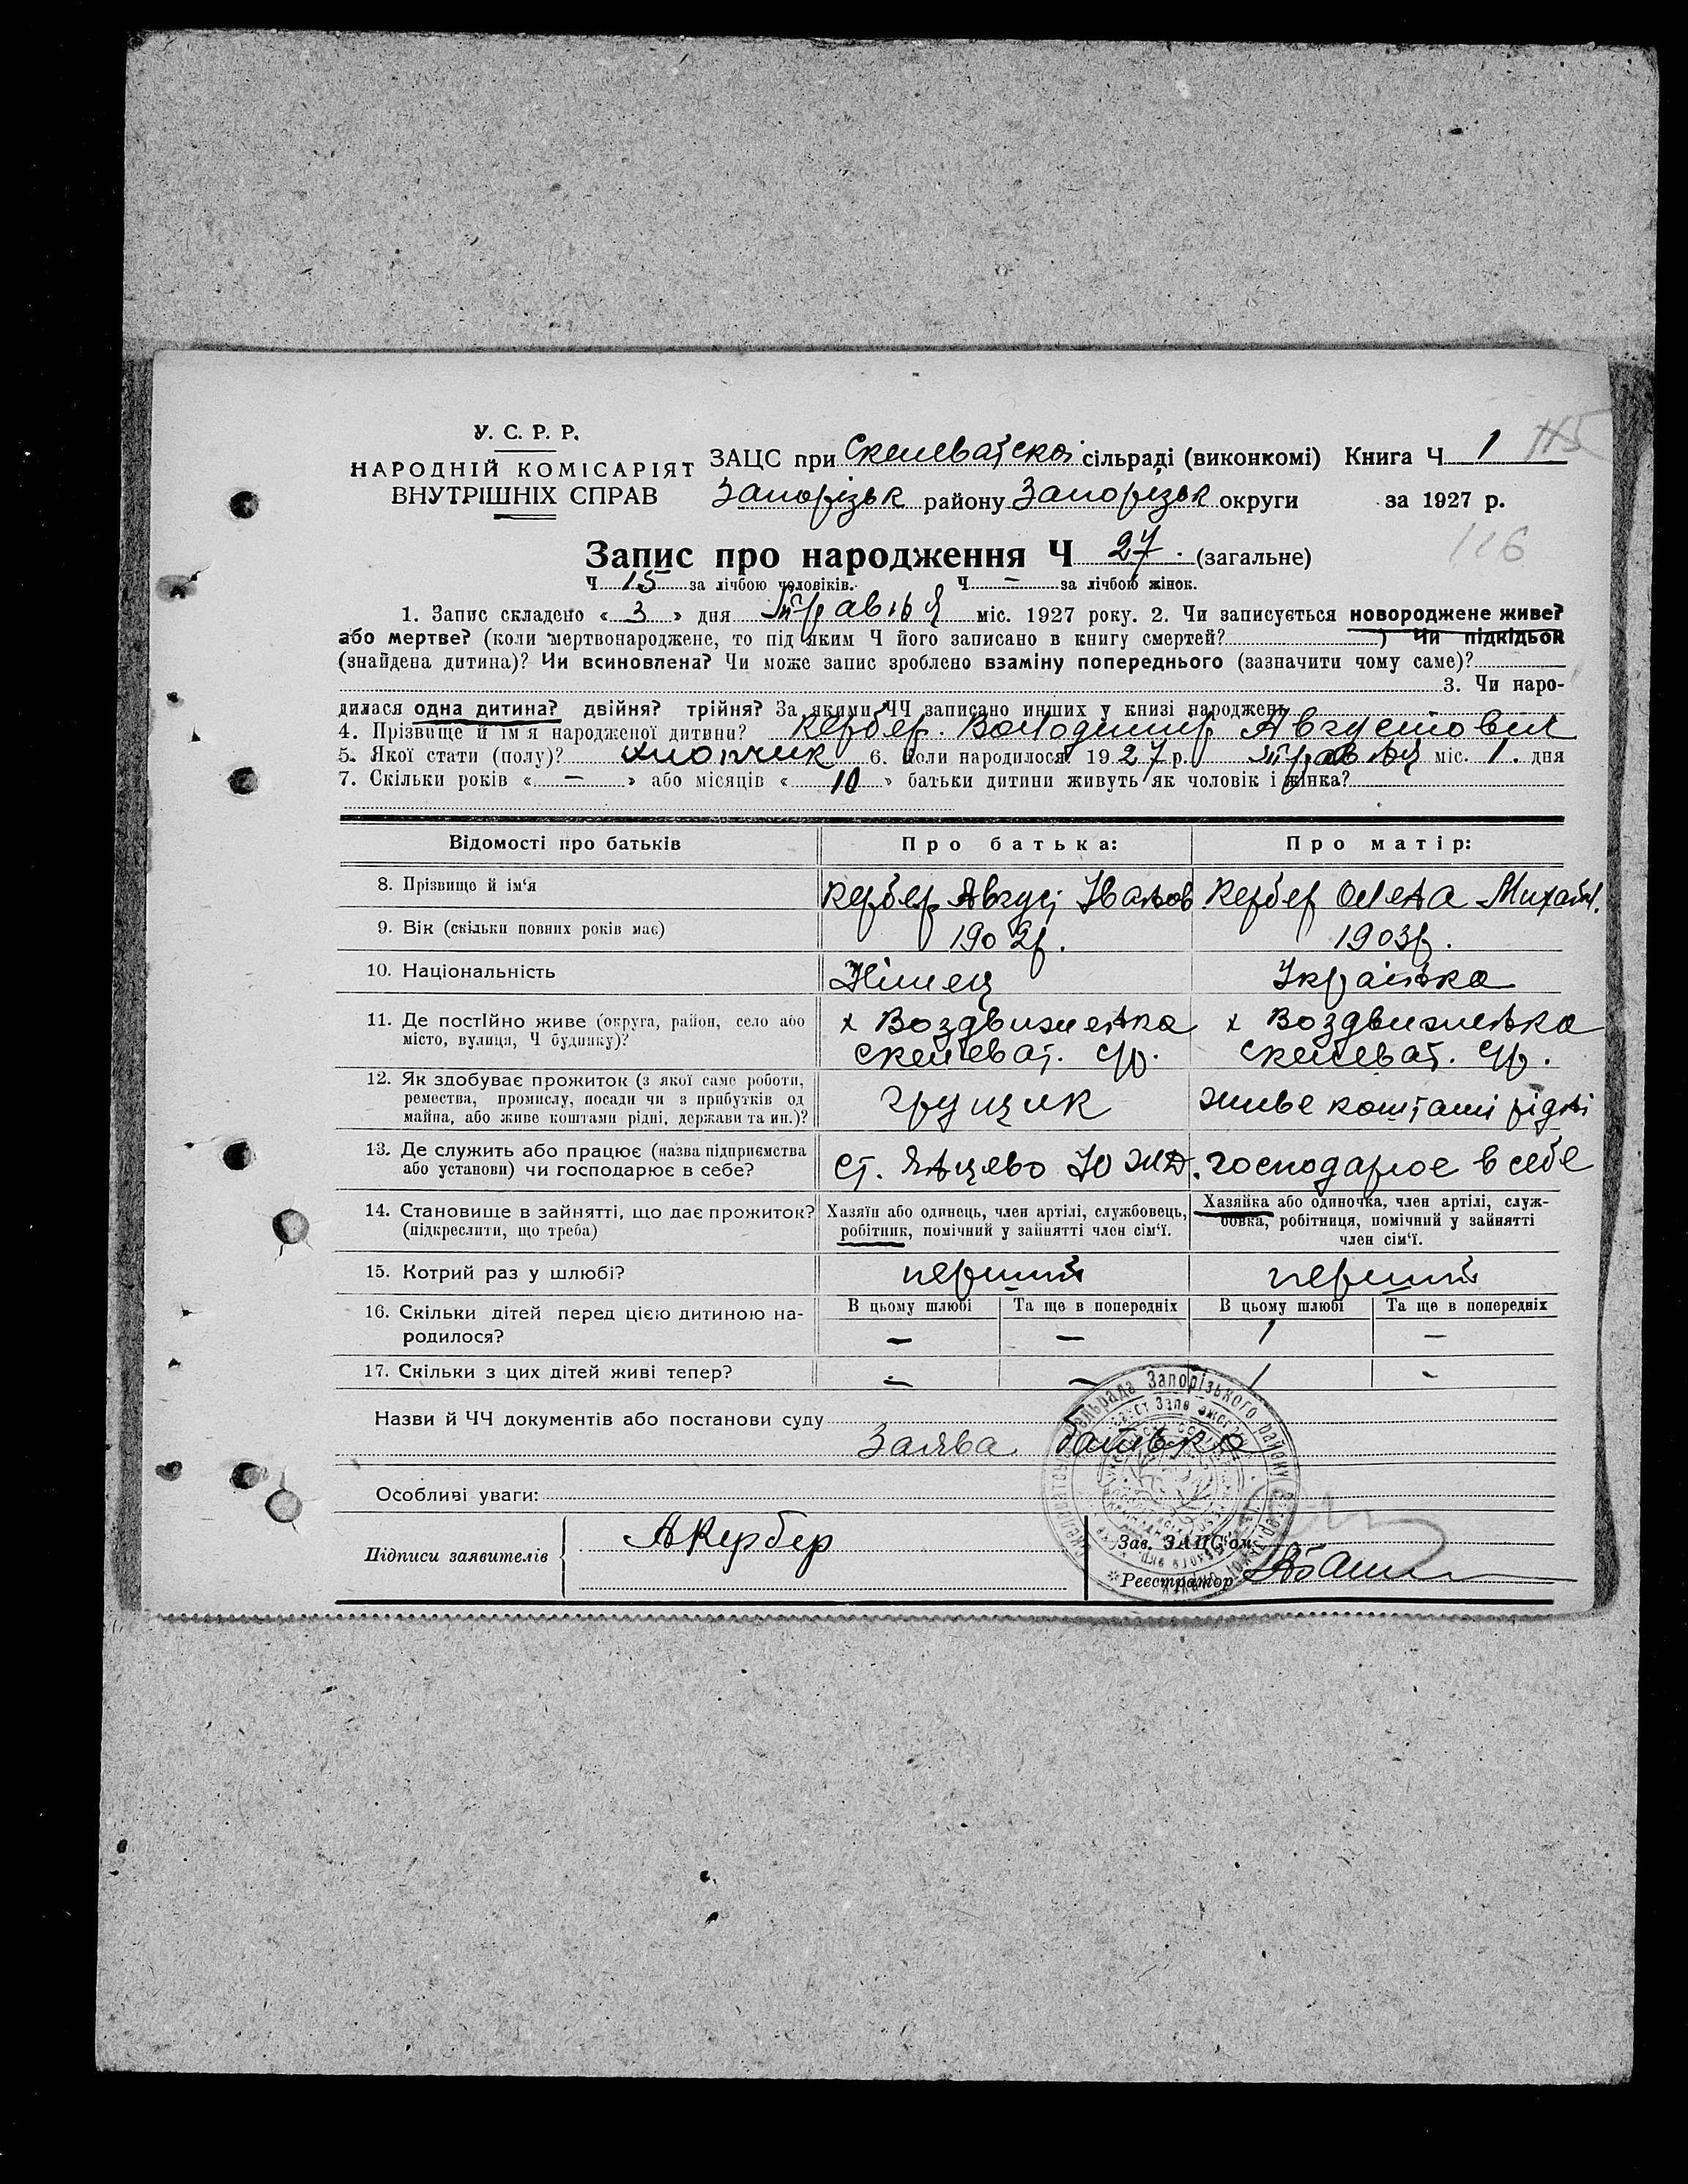 У. С. Р. Р.
НАРОДНІЙ КОМІСАРІЯТ
ВНУТРІШНІХ СПРАВ
ЗАЦС при Скелеватскої сільраді (виконкомі) Книга Ч 1 115
Запорізьк району Запорізьк округи за 1927 р.
116
Запис про народження Ч 27. (загальне)
Ч 15 за лічбою чоловіків. Ч — за лічбою жінок.
1. Запис складено « 3 » дня Травня міс. 1927 року. 2. Чи записується новороджене живе?
або мертве? (коли мертвонароджене, то під яким Ч його записано в книгу смертей? ) Чи підкідьок
(знайдена дитина)? Чи всиновлена? Чи може запис зроблено взаміну попереднього (зазначити чому саме)?
3. Чи наро-
дилася одна дитина? двійня? трійня? За якими ЧЧ записано инших у книзі народжень
4. Прізвище й ім'я народженої дитини? Кербер. Володимир Августович
5. Якої стати (полу)? хлопчик 6. Коли народилося? 1927 р. травня міс. 1. дня
7. Скільки років « — » або місяців « 10 » батьки дитини живуть як чоловік і жінка?
Відомості про батьків Про батька: Про матір:
8. Прізвище й ім'я Кербер Август Іванов. Кербер Олена Михайл.
9. Вік (скільки повних років має) 1902р. 1903р.
10. Національність Німець Українка
11. Де постійно живе (округа, район, село або місто, вулиця, Ч будинку)? х Воздвиженка х Воздвиженка
Скелеват. с/р. Скелеват. с/р.
12. Як здобуває прожиток (з якої саме роботи,
ремества, промислу, посади чи з прибутків од
майна, або живе коштами рідні, держави та ин.)? грущик живе коштами рідні
13. Де служить або працює (назва підприємства
або установи) чи господарює в себе? ст. Янцево Ю ЖД. господарює в себе
14. Становище в зайнятті, що дає прожиток?
(підкреслити, що треба)
Хазяїн або одинець, член артілі, службовець,
робітник, помічний у зайнятті член сім'ї.
Хазяйка або одиночка, член артілі, служ-
бовка, робітниця, помічний у зайнятті
член сім'ї.
15. Котрий раз у шлюбі? перший перший
16. Скільки дітей перед цією дитиною на-
родилося?
В цьому шлюбі Та ще в попередніх В цьому шлюбі Та ще в попередніх
— — 1 —
17. Скільки з цих дітей живі тепер? — — 1 -
Назви й ЧЧ документів або постанови суду
Заява батька
Особливі уваги:
Підписи заявителів АКербер
Зав. ЗАЦС'ом
Реєстратор